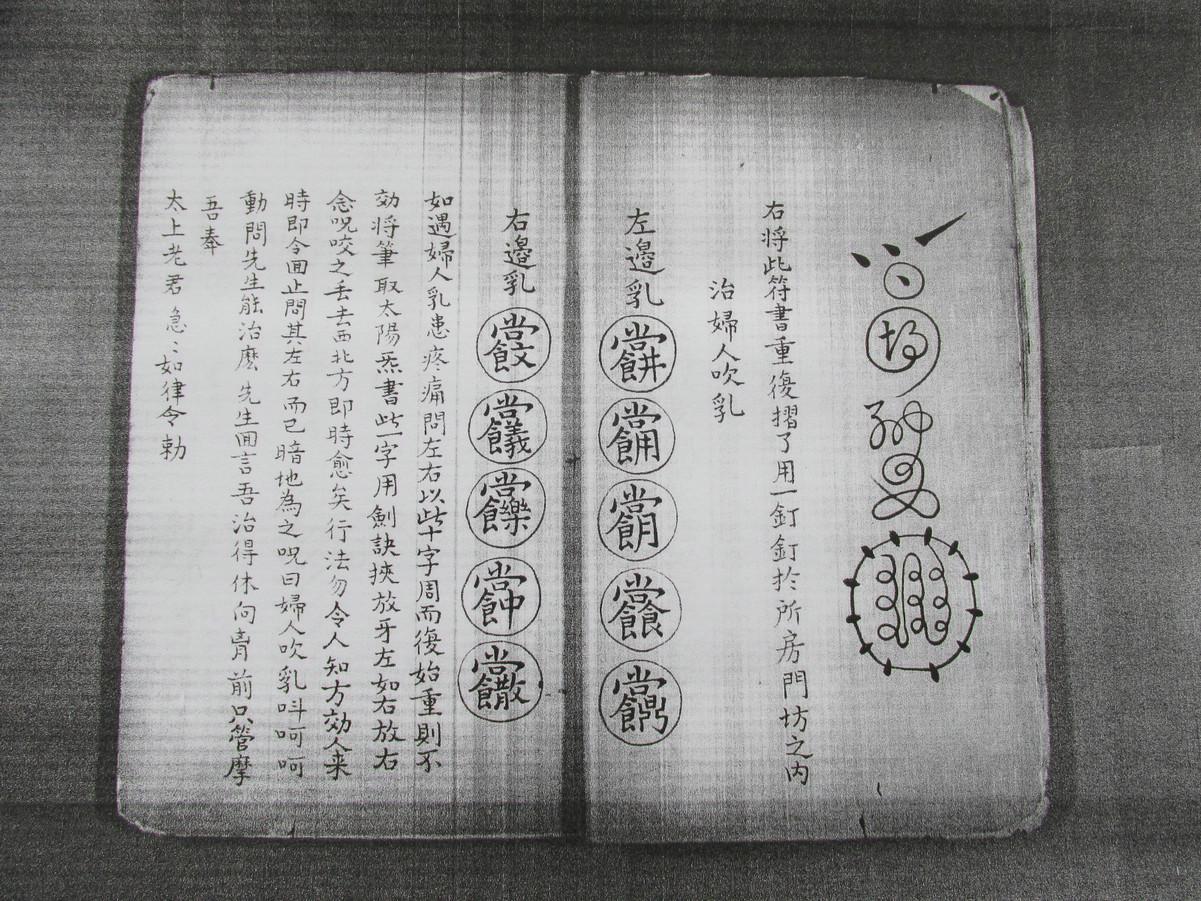 右將此符書重復摺了用一釘釘於所房門坊之内
治婦人吹乳
左邉乳
右邉乳
如遇婦人乳患疼痛問左右以此十字周而復始重則不
効将筆取太陽炁書此一字用劍訣挾放牙左如右放右
念呪咬之丢去西北方即時愈矣行法勿令人知方効人来
時即令囬止問其左右而已暗地為之呪曰婦人吹乳呌呵呵
動問先生能治麽先生囬言吾治得休向膏前只管摩
吾奉
太上老君急〻如律令勅